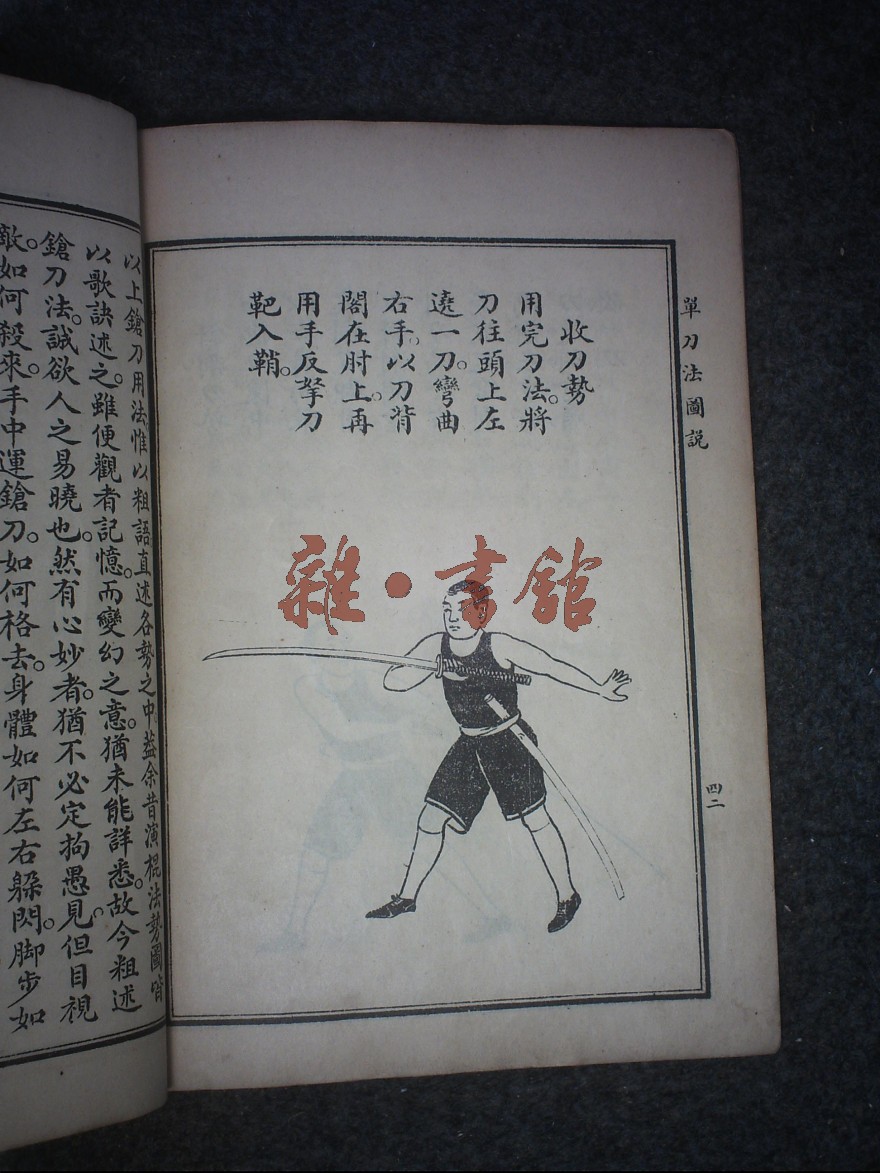 單刀法圖説
收刀勢
用完刀法。將
刀往頭上左
遶一刀。彎曲
右手、以刀背
閣在肘上。再
用手反拏刀
靶入鞘。
四二
雜·書舘
以上鎗刀用法、惟以粗語直述各勢之中、葢余昔演棍法勢圖皆
以歌訣述之。雖便觀者記憶。而變幻之意。猶未能詳悉。故今粗述
鎗刀法。誠欲人之易曉也。然有心妙者。猶不必定拘愚見。但目視
敵。如何殺來。手中運鎗刀。如何格去。身體如何左右躲閃。脚步如